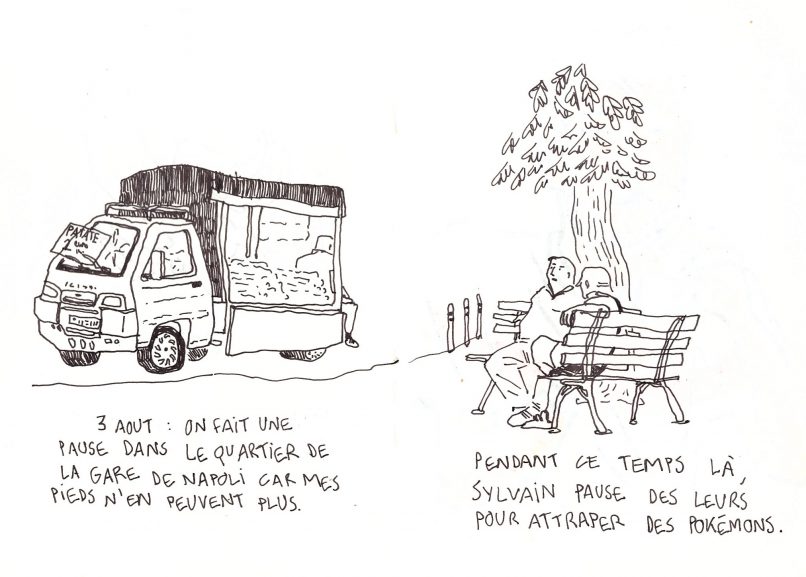 PATATE
2 euro
3 AOUT : ON FAIT UNE
PAUSE DANS LE QUARTIER DE
LA GARE DE NAPOLI CAR MES
PIEDS N'EN PEUVENT PLUS.
PENDANT CE TEMPS LÀ,
SYLVAIN PAUSE DES LEURS
POUR ATTRAPER DES POKÉMONS.